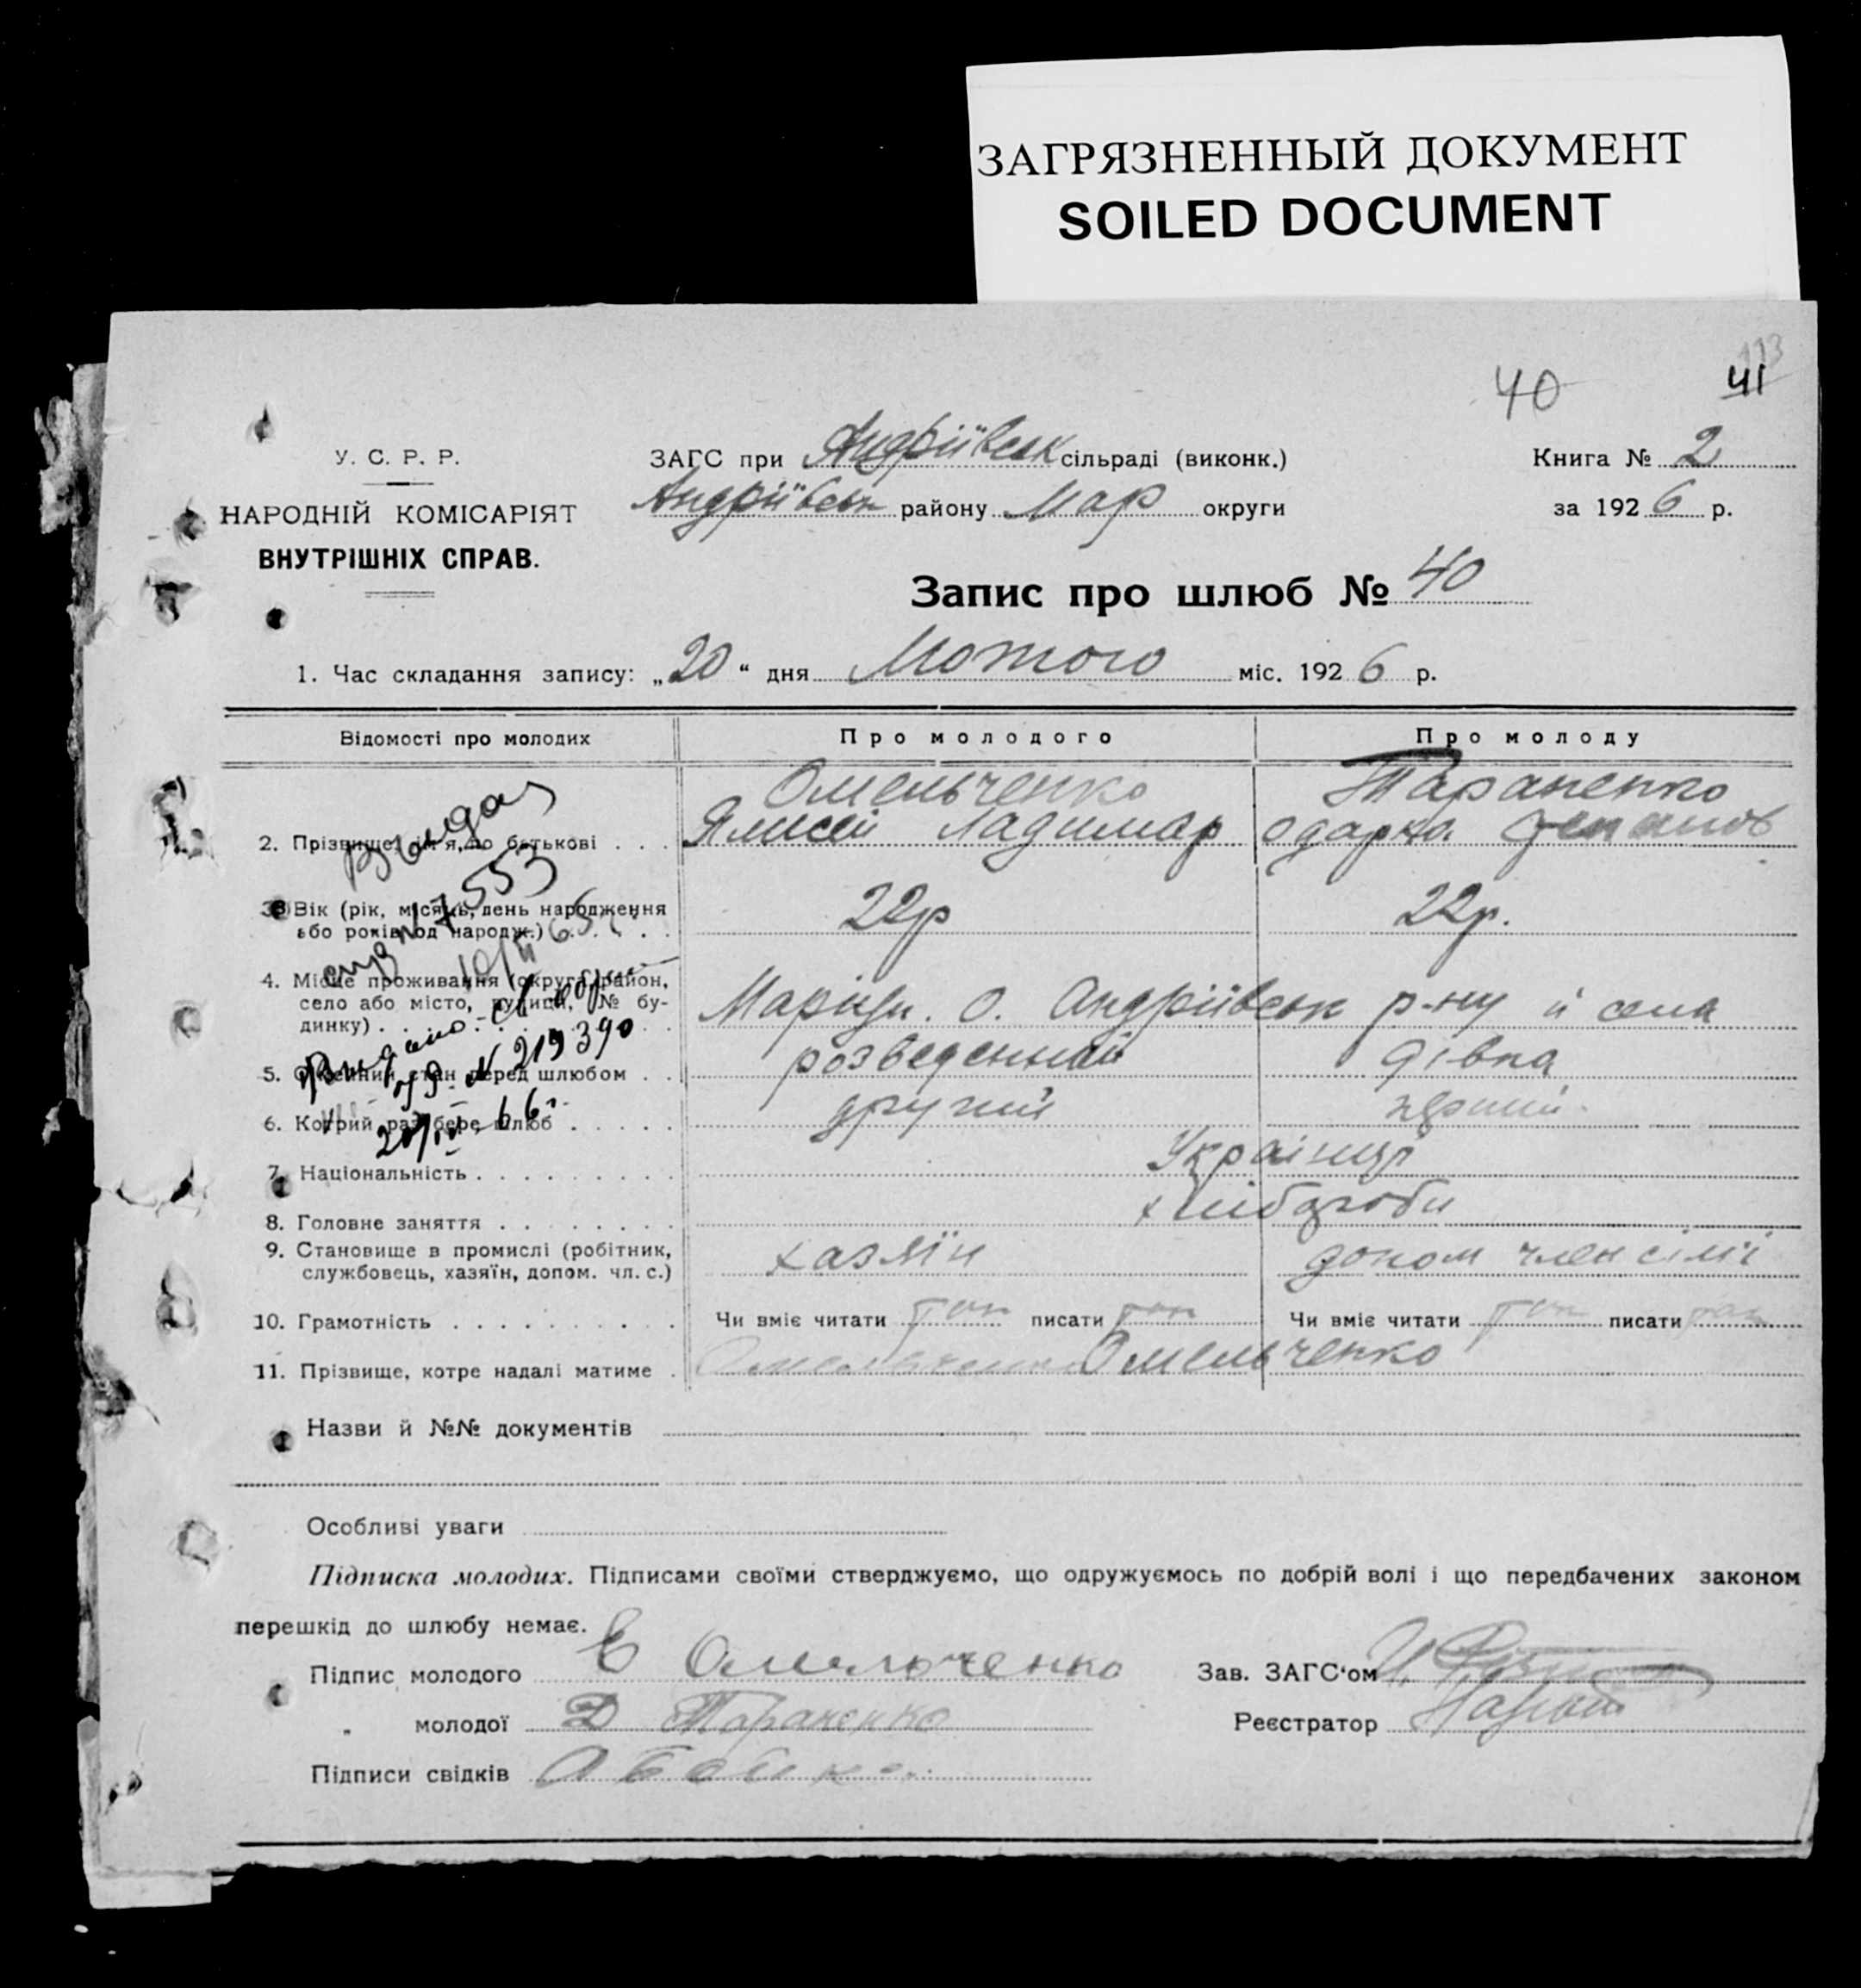 ЗАГРЯЗНЕННЫЙ ДОКУМЕНТ
SOILED DOCUMENT
113
40 41
У. С. Р. Р.
НАРОДНІЙ КОМІСАРІЯТ
ВНУТРІШНІХ СПРАВ.
ЗАГС при Андріївськ сільраді (виконк.)
Андріївськ району Мар округи
Книга № 2
за 1926 р.
Запис про шлюб № 40
1. Час складання запису: „20“ дня Лютого міс. 1926 р.
Відомості про молодих Про молодого Про молоду
Омельченко Тараненко
2. Прізвище, ім'я, по батькові . . . Ялисей Ладимар Одарка
3. Вік (рік, місяць, день народження
або років од народж.) . . . . 22р 22р.
4. Місце проживання (округа, район,
село або місто, вулиця, № бу-
динку) . . . . Маріуп. О. Андріївськ р-ну й села
5. Сімейний стан перед шлюбом . . розведенний дівка
6. Котрий раз бере шлюб . . . . . другий перший
7. Національність . . . . . . . . . Українці
8. Головне заняття . . . . . . . . хліборобы
9. Становище в промислі (робітник,
службовець, хазяїн, допом. чл. с.) хазяїн допом член сімії
10. Грамотність . . . . . . . . . . Чи вміє читати так писати так Чи вміє читати так писати так
11. Прізвище, котре надалі матиме . Омельченко Омельченко
Выдан
№ 7553
Выдано
№ 219390
Назви й №№ документів
Особливі уваги
Підписка молодих. Підписами своїми стверджуємо, що одружуємось по добрій волі і що передбачених законом
перешкід до шлюбу немає.
Підпис молодого Е Омельченко Зав. ЗАГС‘ом
„ молодої Д Тараненко Реєстратор
Підписи свідків А Бойко